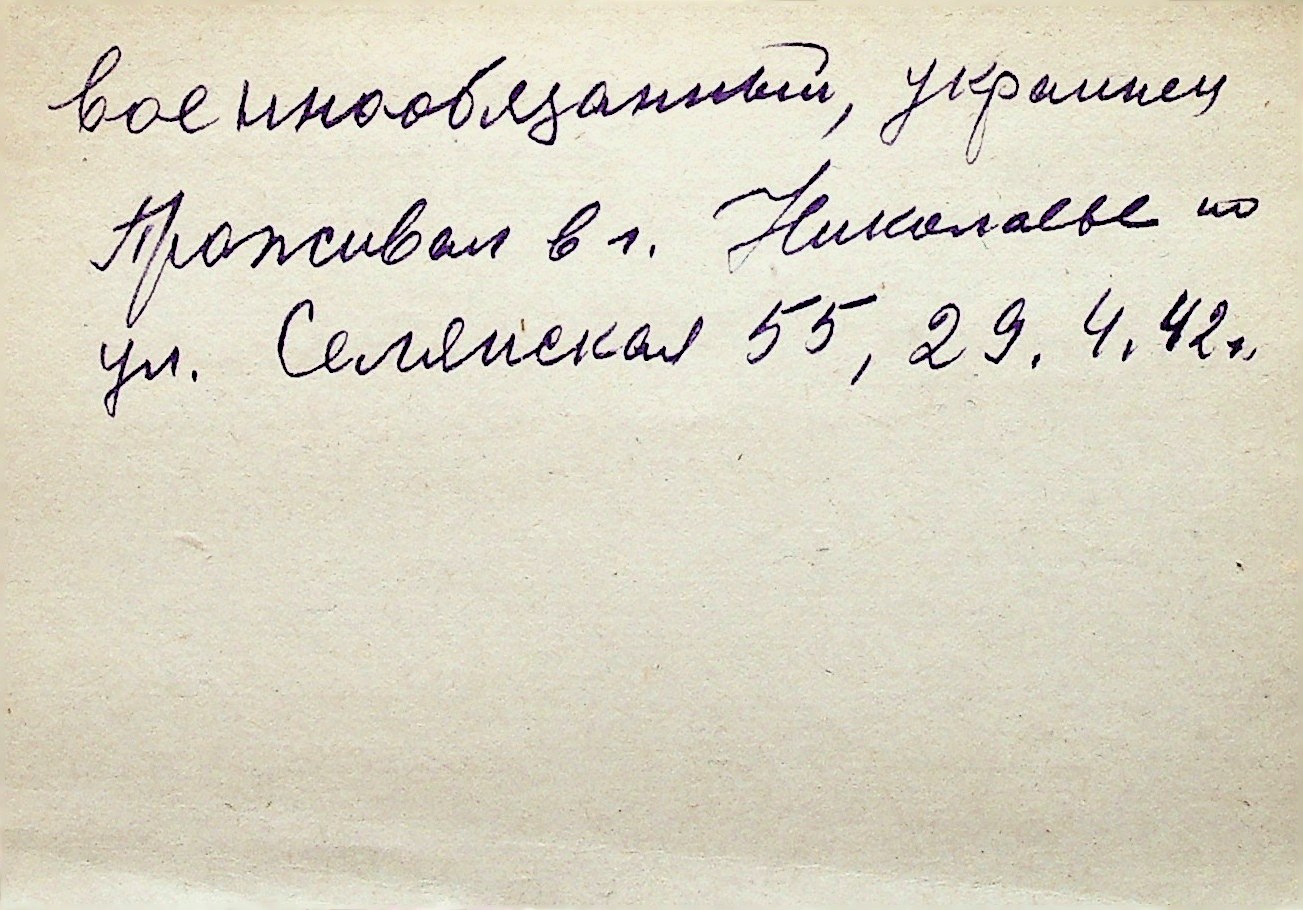 военнообязанный, украинец
Проживал в г. Николаеве по
ул. Селянская 55, 29.4.42г.